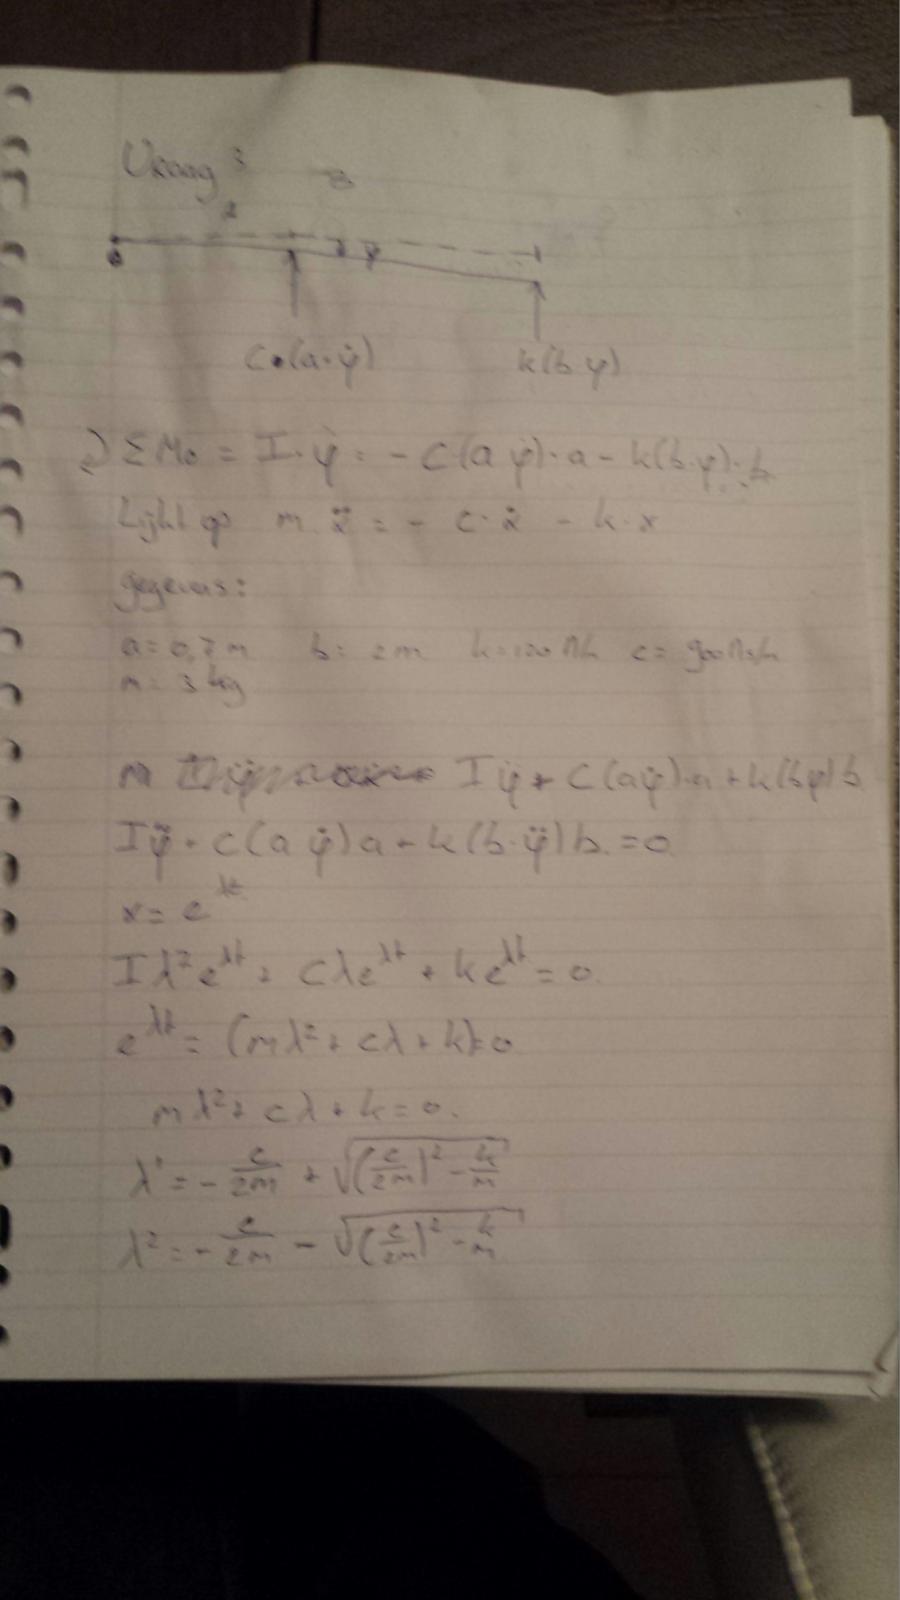 Vraag 3
C•(a·φ̇)
k(b·φ)
ΣMo = I·φ̈ = - c(a φ̇)·a - k(b·φ)·b
Lijkt op m ẍ = - c·ẋ - k·x
gegevens:
a = 0,7 m b = 2m k = 100 N/m c = 900 Ns/m
m = 3 kg
m I φ̈ + C(aφ̇)·a + k(bφ)b
Iφ̈ + c(a φ̇)a + k(b·φ̈)b = 0
x = e^λt
Iλ²e^λt + cλe^λt + ke^λt = 0.
e^λt = (mλ² + cλ + k)=0
mλ² + cλ + k = 0.
λ¹ = - c/2m + √((c/2m)² - k/m)
λ² = - c/2m - √((c/2m)² - k/m)